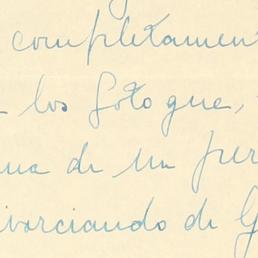 completament
los foto que,
de un per
ivorciando de G